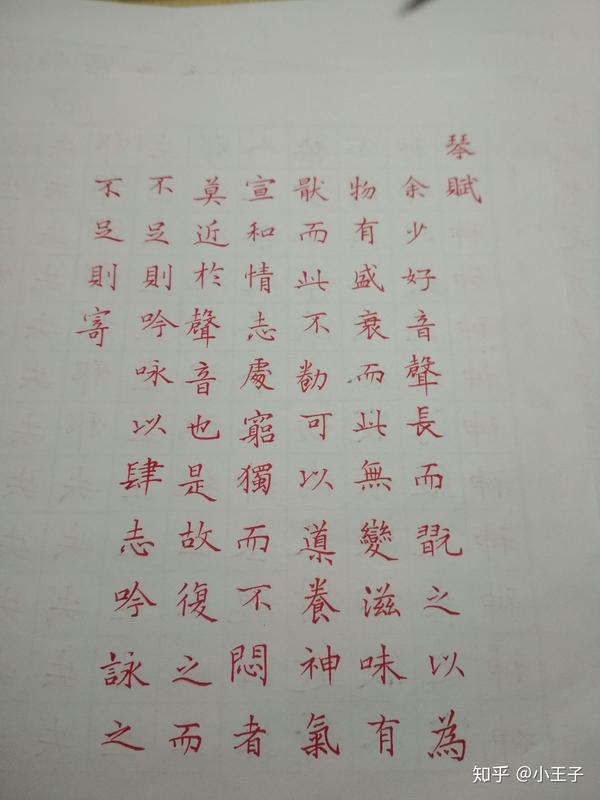 琴賦
余少好音聲長而翫之以為
物有盛衰而此無變滋味有
猒而此不勌可以導養神氣
宣和情志處窮獨而不悶者
莫近於聲音也是故復之而
不足則吟咏以肆志吟詠之
不足則寄
知乎 @小王子